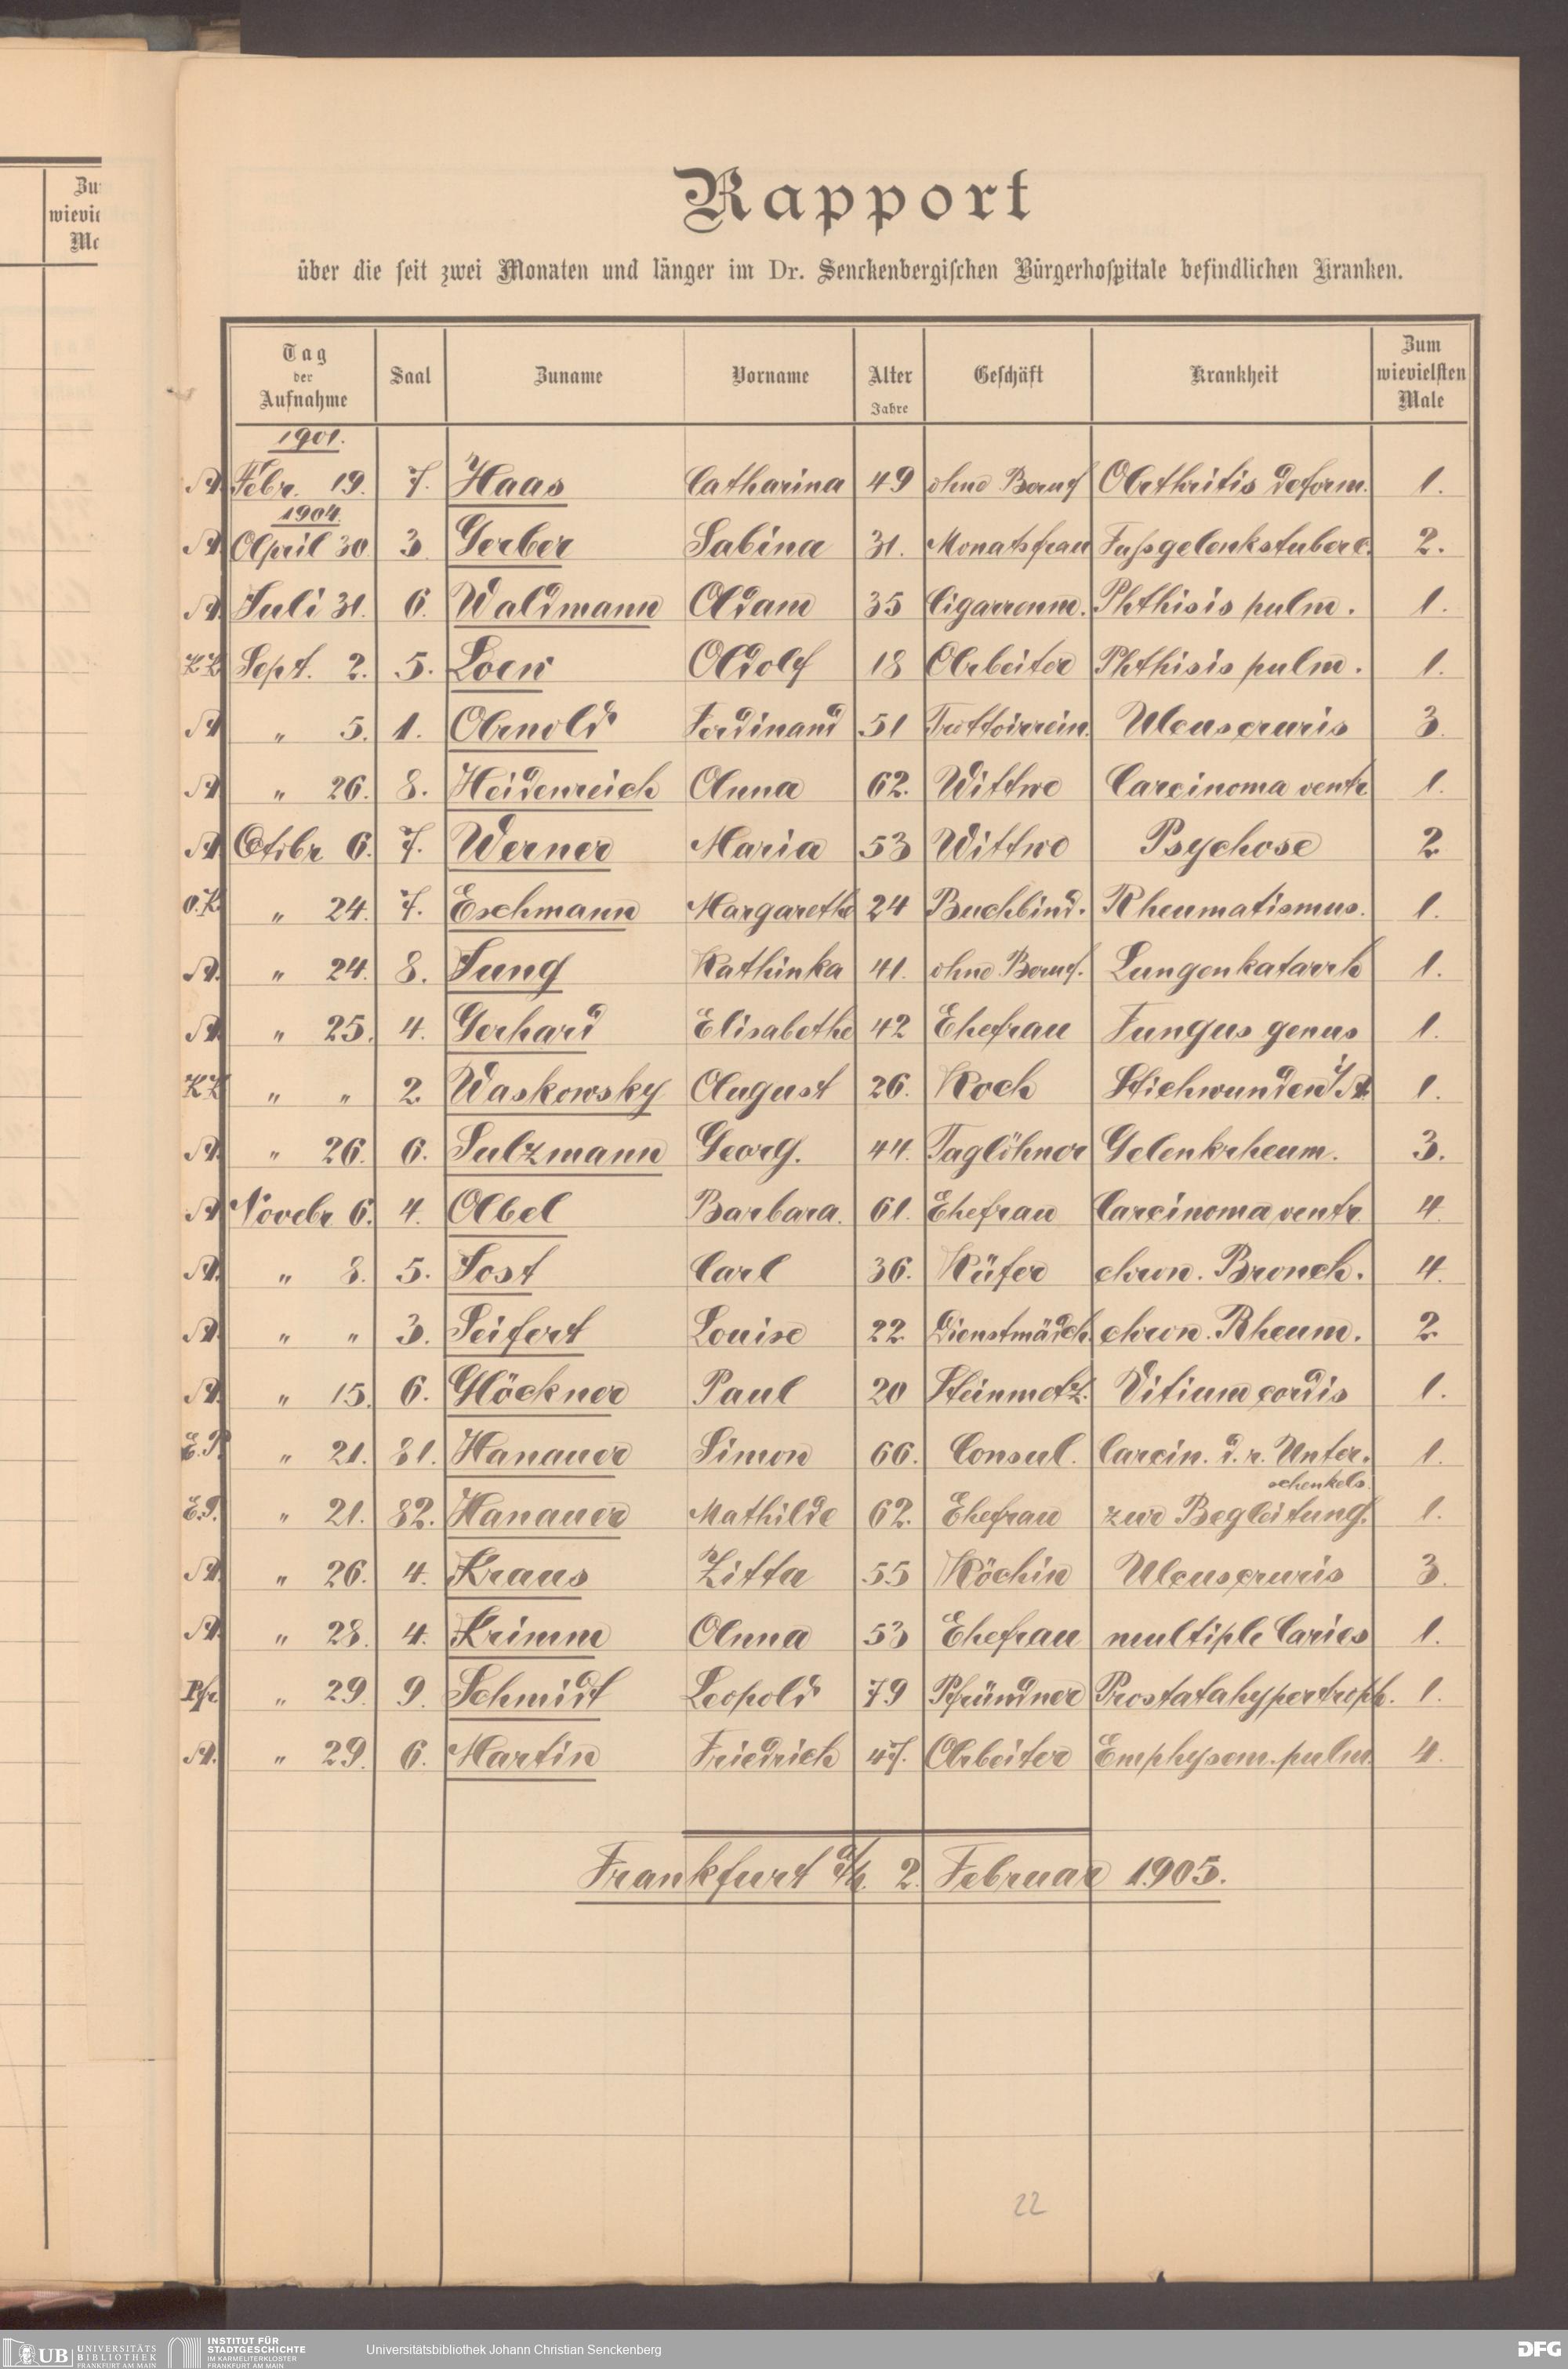 Zu
wievie
Ma
Rapport
über die seit zwei Monaten und länger im Dr. Senckenbergischen Bürgerhospitale befindlichen Kranken.
Tag der Aufnahme Saal Zuname Vorname Alter Jahre Geschäft Krankheit Zum wievielsten Male
1901.
A. Febr. 19. 7. Haas Catharina 49 ohne Beruf Arthritis deform. 1.
1904.
A. April 30 3 Gerber Sabina 31. Monatsfrau Fußgelenkstuberc. 2.
A. Juli 31. 6. Waldmann Adam 35 Cigarrenm. Phthisis pulm. 1.
Sept. 2. 5. Loew Adolf 18 Arbeiter Phthisis pulm. 1.
A " 5. 1. Arnold Ferdinand 51 Trottoirrein. Ulcus cruris 3.
A " 26. 8. Heidenreich Anna 62. Wittwe Carcinoma ventr 1.
A. Octbr 6. 7. Werner Maria 53 Wittwe Psychose 2
O.K. " 24. 7. Eschmann Margarethe 24 Buchbind. Rheumatismus. 1.
A. " 24. 8. Jung Kathinka 41. ohne Beruf. Lungenkatarrh 1.
A. " 25. 4. Gerhard Elisabethe 42 Ehefrau Fungus genus 1.
" " 2 Waskowsky August 26. Koch Stichwunden 1.
A. " 26. 6. Sulzmann Georg. 44. Taglöhner Gelenkrheum. 3.
A Novebr 6. 4. Abel Barbara. 61. Ehefrau Carcinoma ventr. 4.
A. " 8. 5. Jost Carl 36. Küfer chron. Bronch. 4.
A. " " 3. Seifert Louise 22 Dienstmädch. chron. Rheum. 2
A. " 15. 6. Glöckner Paul 20 Steinmetz. Vitium cordis 1.
E.P. " 21. 81. Hanauer Simon 66. Consul. Carcin. d. r. Unter- 1.
schenkels.
E.P. " 21. 82. Hanauer Mathilde 62. Ehefrau zur Begleitung. 1.
A. " 26. 4. Kraus Zitta 55 Köchin Ulcus cruris 3.
A. " 28. 4. Krimm Anna 53 Ehefrau multiple Caries 1.
Pfr. " 29. 9. Schmidt Leopold 79 Pfründner Prostatahypertroph. 1.
A. " 29. 6. Martin Friedrich 47. Arbeiter Emphysem. pulm. 4.
Frankfurt 2. Februar 1905.
22
UB UNIVERSITÄTS
BIBLIOTHEK
FRANKFURT AM MAIN
INSTITUT FÜR
STADTGESCHICHTE
IM KARMELITERKLOSTER
FRANKFURT AM MAIN
Universitätsbibliothek Johann Christian Senckenberg
DFG